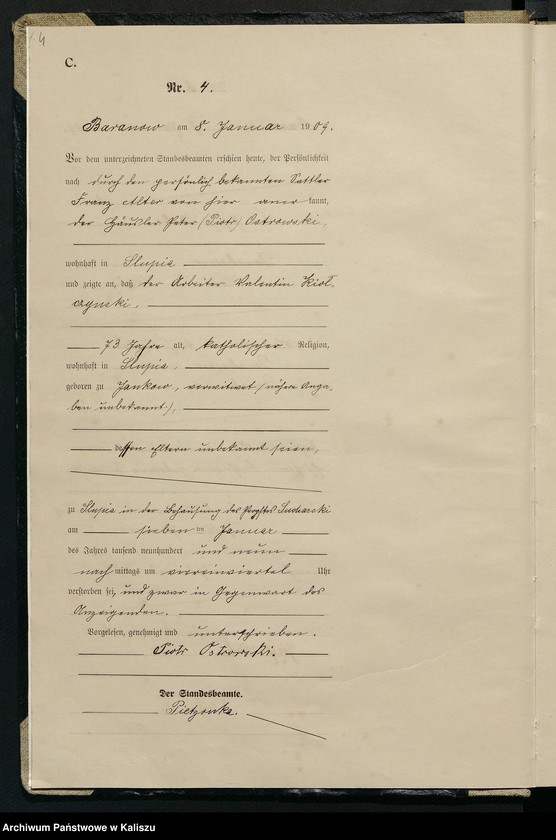 4
C.
Nr. 4.
Baranow am 8. Januar 1909.
Vor dem unterzeichneten Standesbeamten erschien heute, der Persönlichkeit
nach durch den persönlich bekannten Sattler
Franz Alter von hier aner kannt,
der Häusler Peter (Piotr) Ostrowski,
wohnhaft in Slupia
und zeigte an, daß der Arbeiter Valentin Kiol-
czynski,
73 Jahre alt, katholischer Religion,
wohnhaft in Slupia,
geboren zu Jankow, verwitwet (nähere Anga-
ben unbekannt),
dessen Eltern unbekannt seien,
zu Slupia in der Behausung des Propstes Sucharski
am sieben ten Januar
des Jahres tausend neunhundert und neun
nach mittags um viereinviertel Uhr
verstorben sei, und zwar in Gegenwart des
Anzeigenden.
Vorgelesen, genehmigt und unterschrieben.
Piotr Ostrowski.
Der Standesbeamte.
Pietzonka.
Archiwum Państwowe w Kaliszu